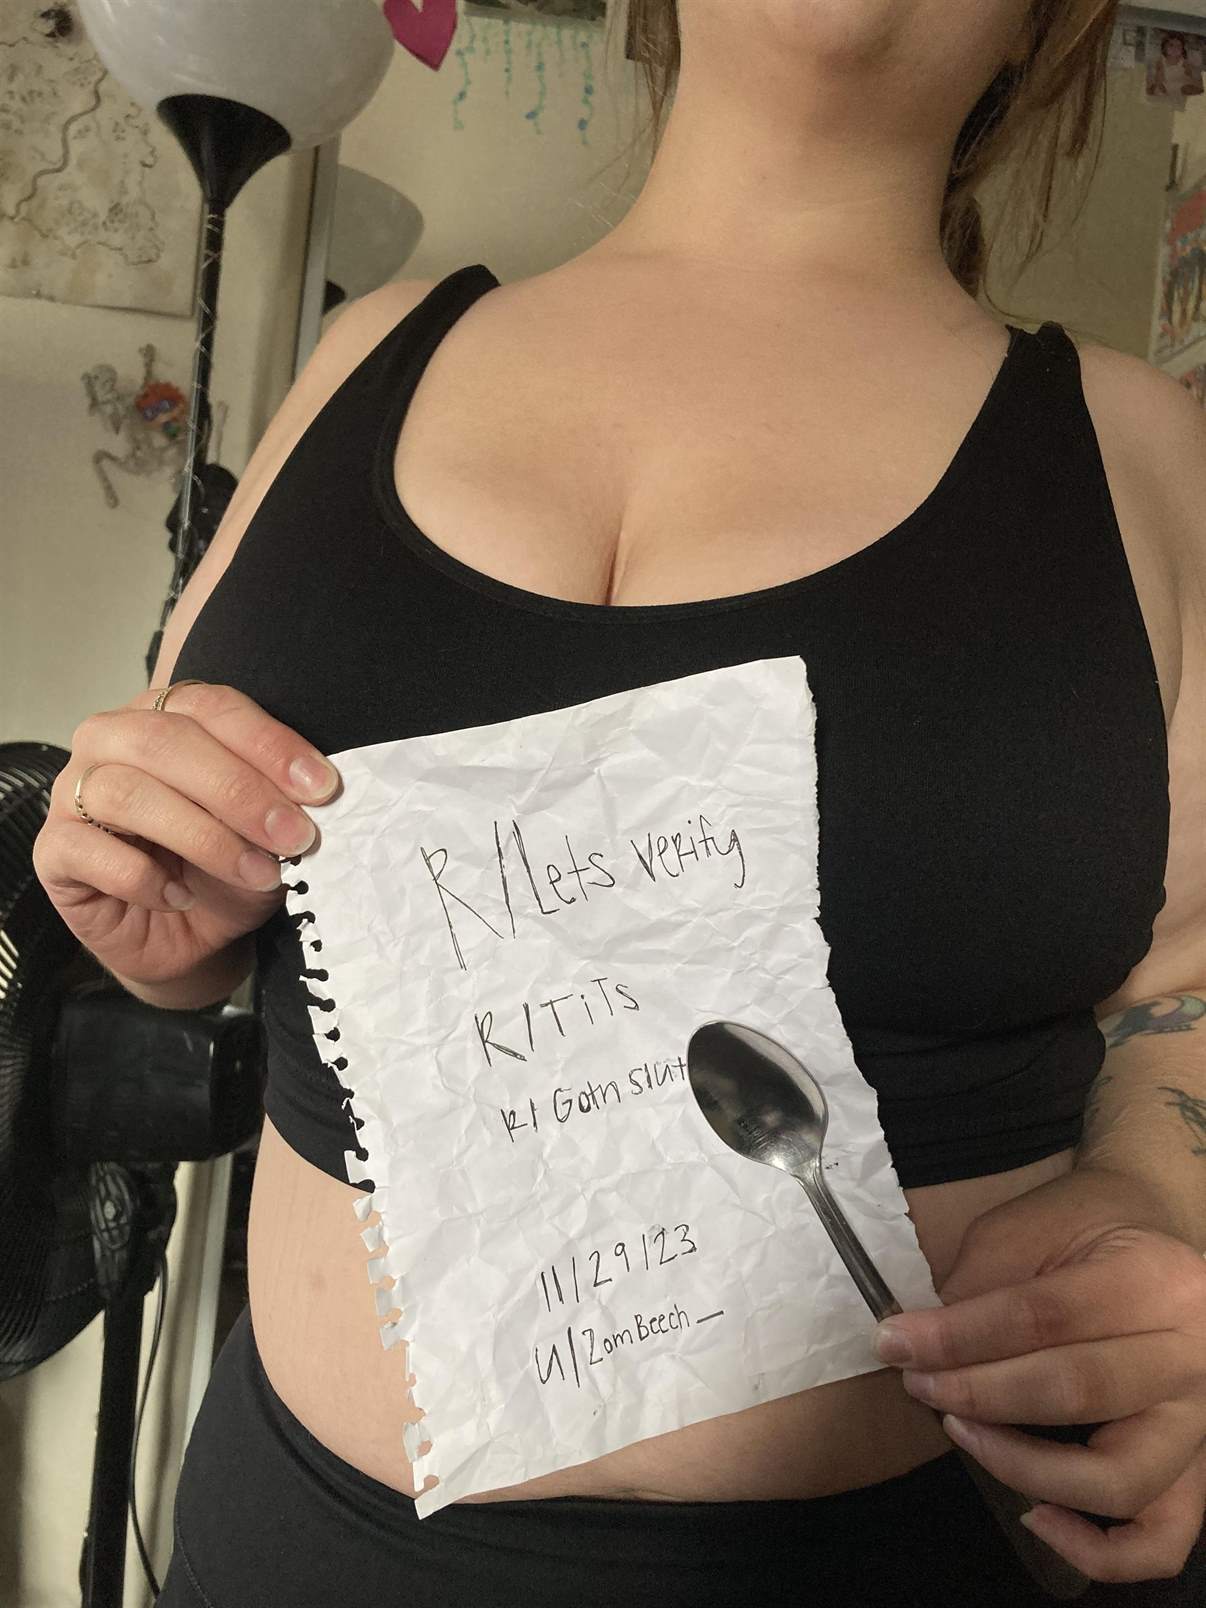 R/Lets verify
R/TiTs
R/ Goth slut
11/29/23
u/ZomBeech_